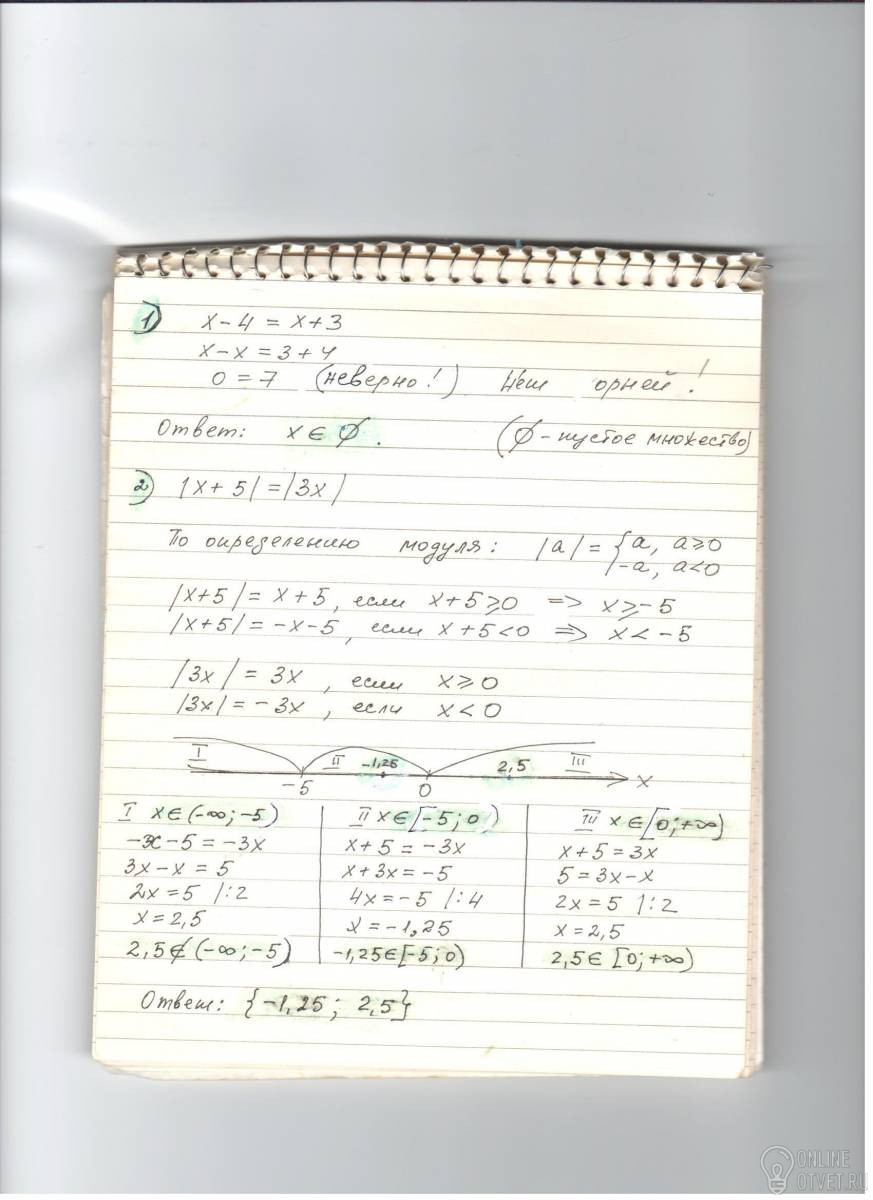 1) x-4 = x+3
x-x = 3+4
0 = 7 (неверно!) Нет орней!
Ответ: x ∈ ∅. (∅ - пустое множество)
2) |x+5| = |3x|
По определению модуля: |a| = { a, a⩾0
-a, a<0
|x+5| = x+5, если x+5⩾0 => x⩾-5
|x+5| = -x-5, если x+5<0 => x < -5
|3x| = 3x, если x⩾0
|3x| = -3x, если x<0
I II -1,25 2,5 III
-5 0 x
I x∈(-∞; -5) II x∈[-5; 0) III x∈[0; +∞)
-x-5 = -3x x+5 = -3x x+5 = 3x
3x-x = 5 x+3x = -5 5 = 3x-x
2x = 5 |:2 4x = -5 |:4 2x = 5 |:2
x = 2,5 x = -1,25 x = 2,5
2,5 ∉ (-∞; -5) -1,25 ∈ [-5; 0) 2,5 ∈ [0; +∞)
Ответ: {-1,25; 2,5}
ONLINE
OTVET.RU